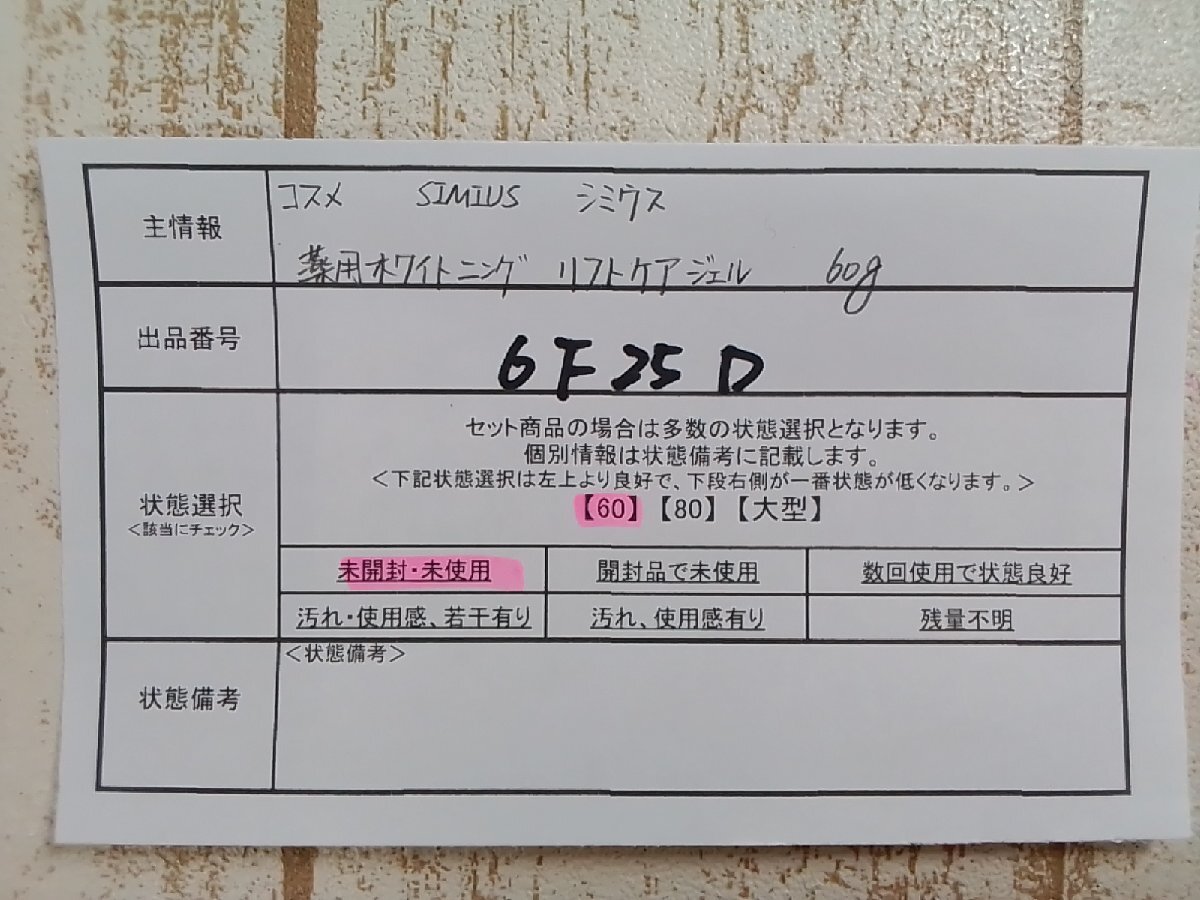 主情報
コスメ SIMIUS シミウス
薬用ホワイトニング リフトケアジェル 60g
出品番号
6F25D
状態選択
＜該当にチェック＞
セット商品の場合は多数の状態選択となります。
個別情報は状態備考に記載します。
＜下記状態選択は左上より良好で、下段右側が一番状態が低くなります。＞
【60】【80】【大型】
未開封・未使用 開封品で未使用 数回使用で状態良好
汚れ・使用感、若干有り 汚れ、使用感有り 残量不明
状態備考
＜状態備考＞